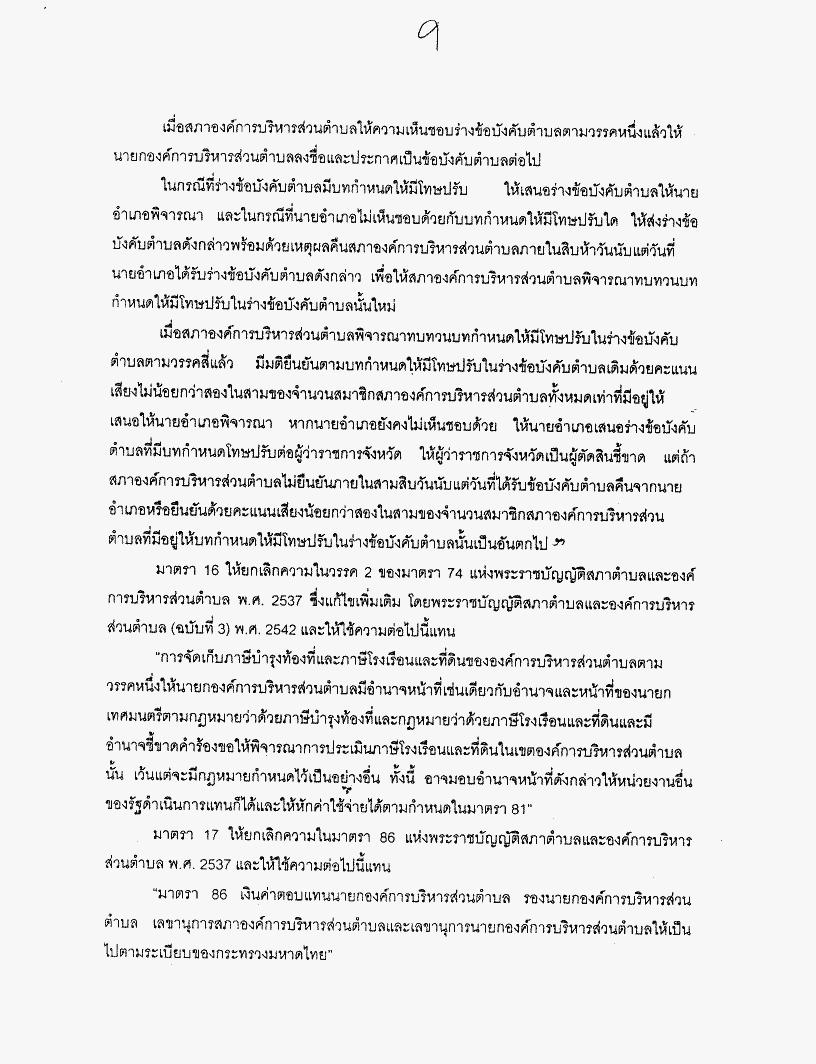 9
เมื่อสภาองค์การบริหารส่วนตำบลให้ความเห็นชอบร่างข้อบังคับตำบลตามวรรคหนึ่งแล้วให้
นายกองค์การบริหารส่วนตำบลลงชื่อและประกาศเป็นข้อบังคับตำบลต่อไป
ในกรณีที่ร่างข้อบังคับตำบลมีบทกำหนดให้มีโทษปรับ ให้เสนอร่างข้อบังคับตำบลให้นาย
อำเภอพิจารณา และในกรณีที่นายอำเภอไม่เห็นชอบด้วยกับบทกำหนดให้มีโทษปรับใด ให้ส่งร่างข้อ
บังคับตำบลดังกล่าวพร้อมด้วยเหตุผลคืนสภาองค์การบริหารส่วนตำบลภายในสิบห้าวันนับแต่วันที่
นายอำเภอได้รับร่างข้อบังคับตำบลดังกล่าว เพื่อให้สภาองค์การบริหารส่วนตำบลพิจารณาทบทวนบท
กำหนดให้มีโทษปรับในร่างข้อบังคับตำบลนั้นใหม่
เมื่อสภาองค์การบริหารส่วนตำบลพิจารณาทบทวนบทกำหนดให้มีโทษปรับในร่างข้อบังคับ
ตำบลตามวรรคสี่แล้ว มีมติยืนยันตามบทกำหนดให้มีโทษปรับในร่างข้อบังคับตำบลเดิมด้วยคะแนน
เสียงไม่น้อยกว่าสองในสามของจำนวนสมาชิกสภาองค์การบริหารส่วนตำบลทั้งหมดเท่าที่มีอยู่ให้
เสนอให้นายอำเภอพิจารณา หากนายอำเภอยังคงไม่เห็นชอบด้วย ให้นายอำเภอเสนอร่างข้อบังคับ
ตำบลที่มีบทกำหนดโทษปรับต่อผู้ว่าราชการจังหวัด ให้ผู้ว่าราชการจังหวัดเป็นผู้ตัดสินชี้ขาด แต่ถ้า
สภาองค์การบริหารส่วนตำบลไม่ยืนยันภายในสามสิบวันนับแต่วันที่ได้รับข้อบังคับตำบลคืนจากนาย
อำเภอหรือยืนยันด้วยคะแนนเสียงน้อยกว่าสองในสามของจำนวนสมาชิกสภาองค์การบริหารส่วน
ตำบลที่มีอยู่ให้บทกำหนดให้มีโทษปรับในร่างข้อบังคับตำบลนั้นเป็นอันตกไป ”
มาตรา 16 ให้ยกเลิกความในวรรค 2 ของมาตรา 74 แห่งพระราชบัญญัติสภาตำบลและองค์
การบริหารส่วนตำบล พ.ศ. 2537 ซึ่งแก้ไขเพิ่มเติม โดยพระราชบัญญัติสภาตำบลและองค์การบริหาร
ส่วนตำบล (ฉบับที่ 3) พ.ศ. 2542 และให้ใช้ความต่อไปนี้แทน
“การจัดเก็บภาษีบำรุงท้องที่และภาษีโรงเรือนและที่ดินขององค์การบริหารส่วนตำบลตาม
วรรคหนึ่งให้นายกองค์การบริหารส่วนตำบลมีอำนาจหน้าที่เช่นเดียวกับอำนาจและหน้าที่ของนายก
เทศมนตรีตามกฎหมายว่าด้วยภาษีบำรุงท้องที่และกฎหมายว่าด้วยภาษีโรงเรือนและที่ดินและมี
อำนาจชี้ขาดคำร้องขอให้พิจารณาการประเมินภาษีโรงเรือนและที่ดินในเขตองค์การบริหารส่วนตำบล
นั้น เว้นแต่จะมีกฎหมายกำหนดไว้เป็นอย่างอื่น ทั้งนี้ อาจมอบอำนาจหน้าที่ดังกล่าวให้หน่วยงานอื่น
ของรัฐดำเนินการแทนก็ได้และให้หักค่าใช้จ่ายได้ตามกำหนดในมาตรา 81”
มาตรา 17 ให้ยกเลิกความในมาตรา 86 แห่งพระราชบัญญัติสภาตำบลและองค์การบริหาร
ส่วนตำบล พ.ศ. 2537 และให้ใช้ความต่อไปนี้แทน
“มาตรา 86 เงินค่าตอบแทนนายกองค์การบริหารส่วนตำบล รองนายกองค์การบริหารส่วน
ตำบล เลขานุการสภาองค์การบริหารส่วนตำบลและเลขานุการนายกองค์การบริหารส่วนตำบลให้เป็น
ไปตามระเบียบของกระทรวงมหาดไทย”